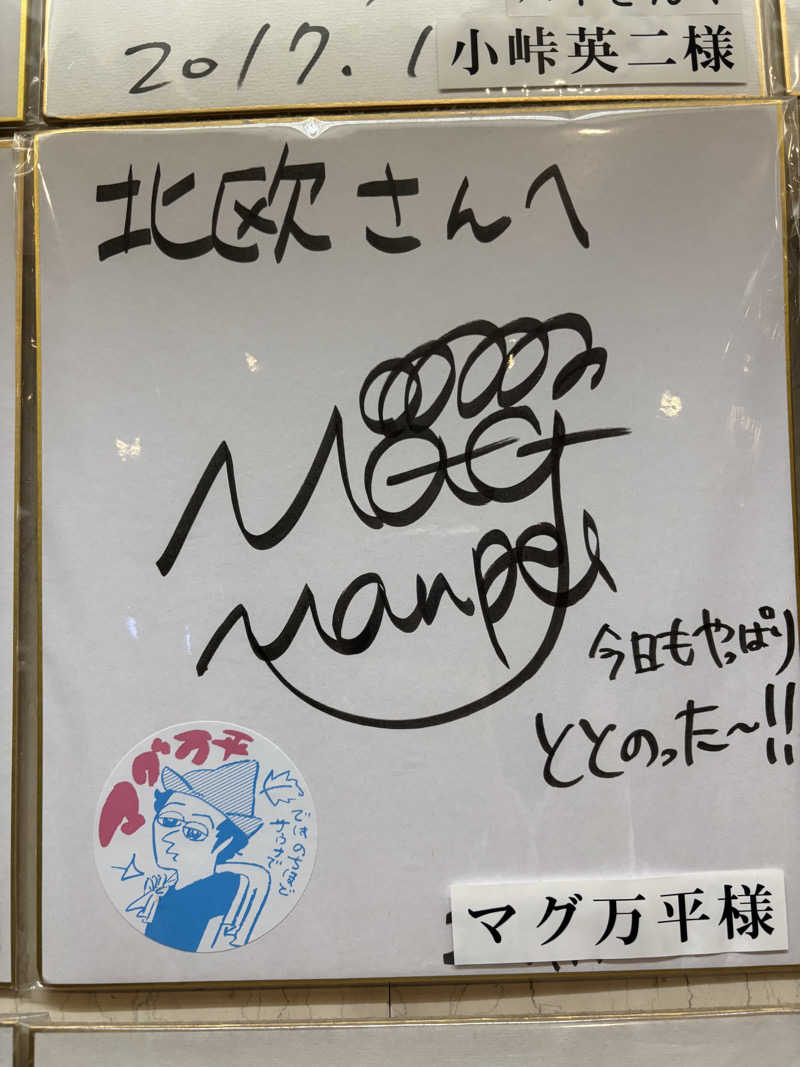 2017. 1
小峠英二様
北欧さんへ
MaG
Manpei
今日もやっぱり
ととのった〜!!
マグ万平
ではのちほど
サウナで
マグ万平様